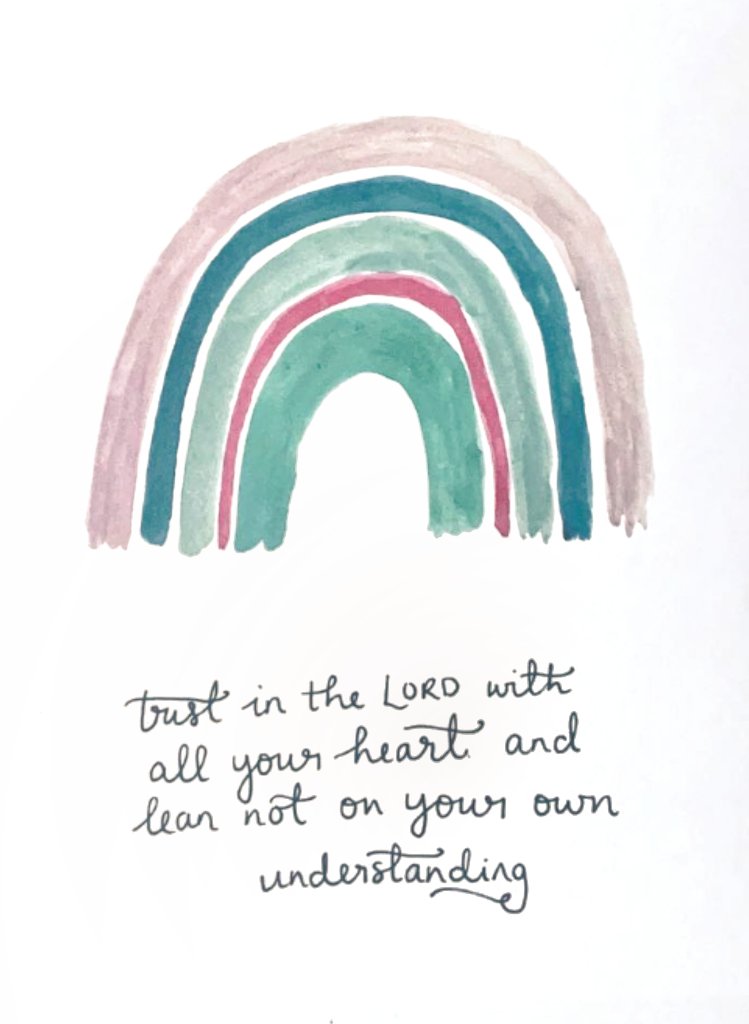 trust in the LORD with
all your heart and
lean not on your own
understanding